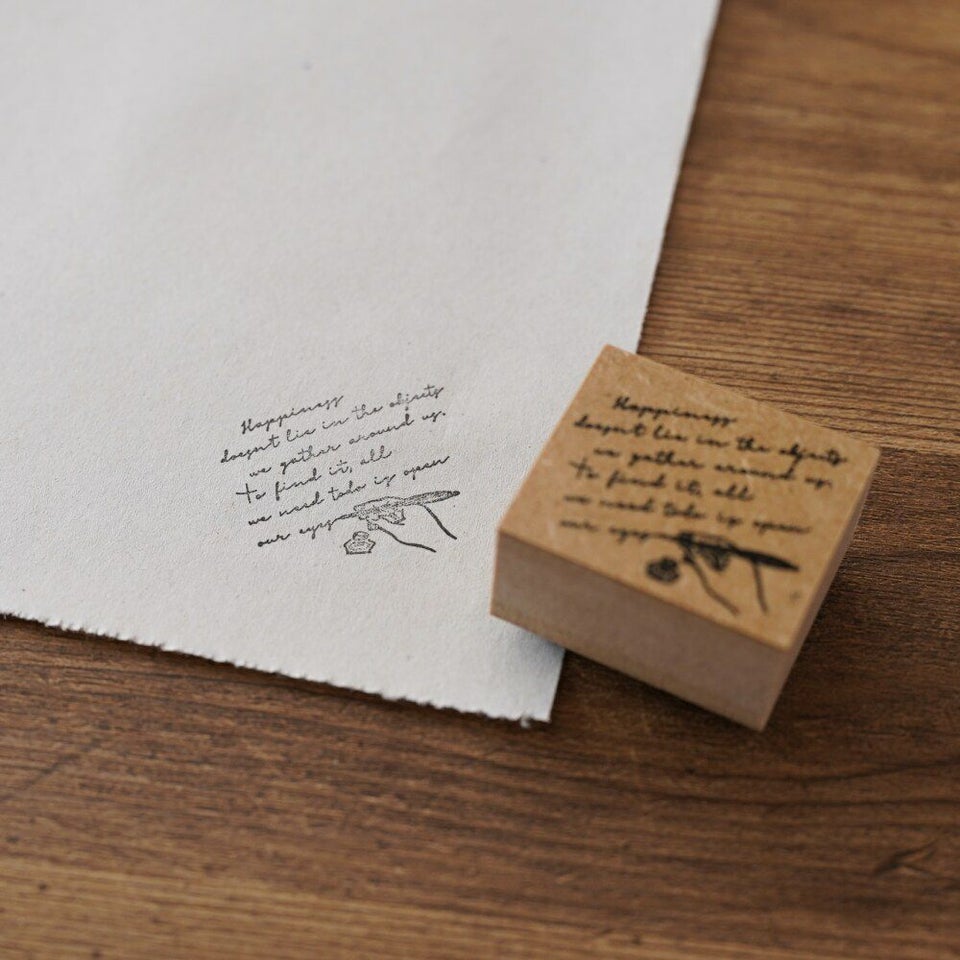 Happiness
doesn't lie in the objects
we gather around us.
To find it, all
we need todo is open
our eyes
Happiness
doesn't lie in the objects
we gather around us.
To find it, all
we need todo is open
our eyes